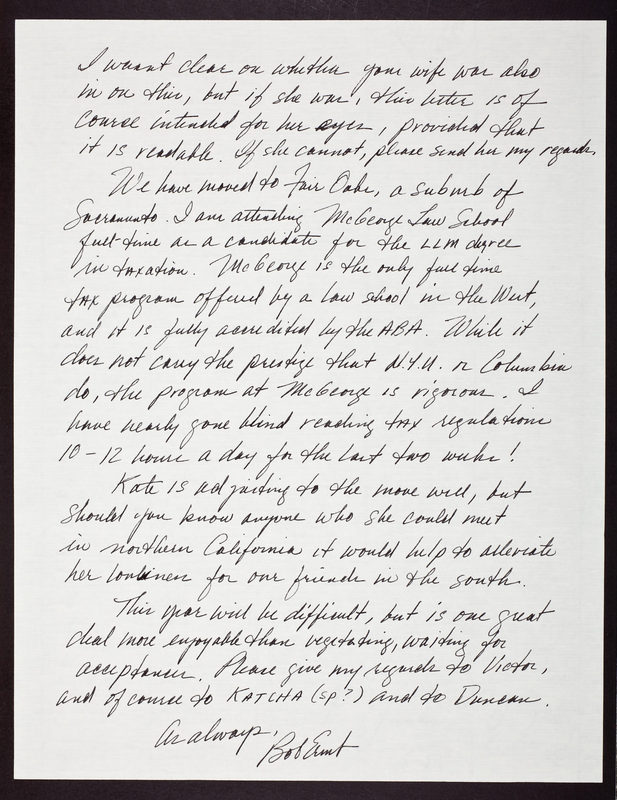 I wasn't clear on whether your wife was also
in on this, but if she was, this letter is of
course intended for her eyes, provided that
it is readable. If she cannot, please send her my regards.
We have moved to Fair Oaks, a suburb of
Sacramento. I am attending McGeorge Law School
full-time as a candidate for the LLM degree
in taxation. McGeorge is the only full time
tax program offered by a law shool in the West,
and it is fully accredited by the ABA. While it
does not carry the prestige that N.Y.U. or Columbia
do, the program at McGeorge is rigorous. I
have nearly gone blind reading tax regulations
10-12 hours a day for the last two weeks!
Kate is adjusting to the move well, but
should you know anyone who she could meet
in northern California it would help to alleviate
her loneliness for our friends in the south.
This year will be difficult, but is one great
deal more enjoyable than vegetating, waiting for
acceptances. Please give my regards to Victor,
and of course to KATCHA (SP?) and to Duncan.
As always,
Bob Ernst